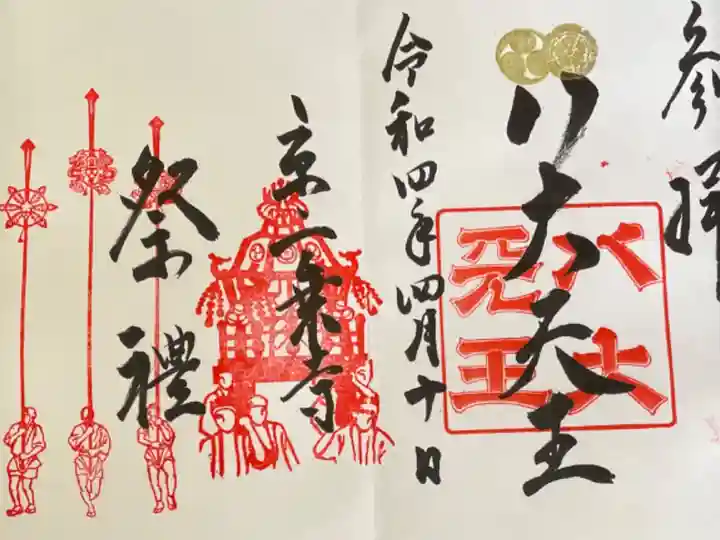 参拝
八大天王
八大天王
令和四年四月十日
京一乗寺
祭禮